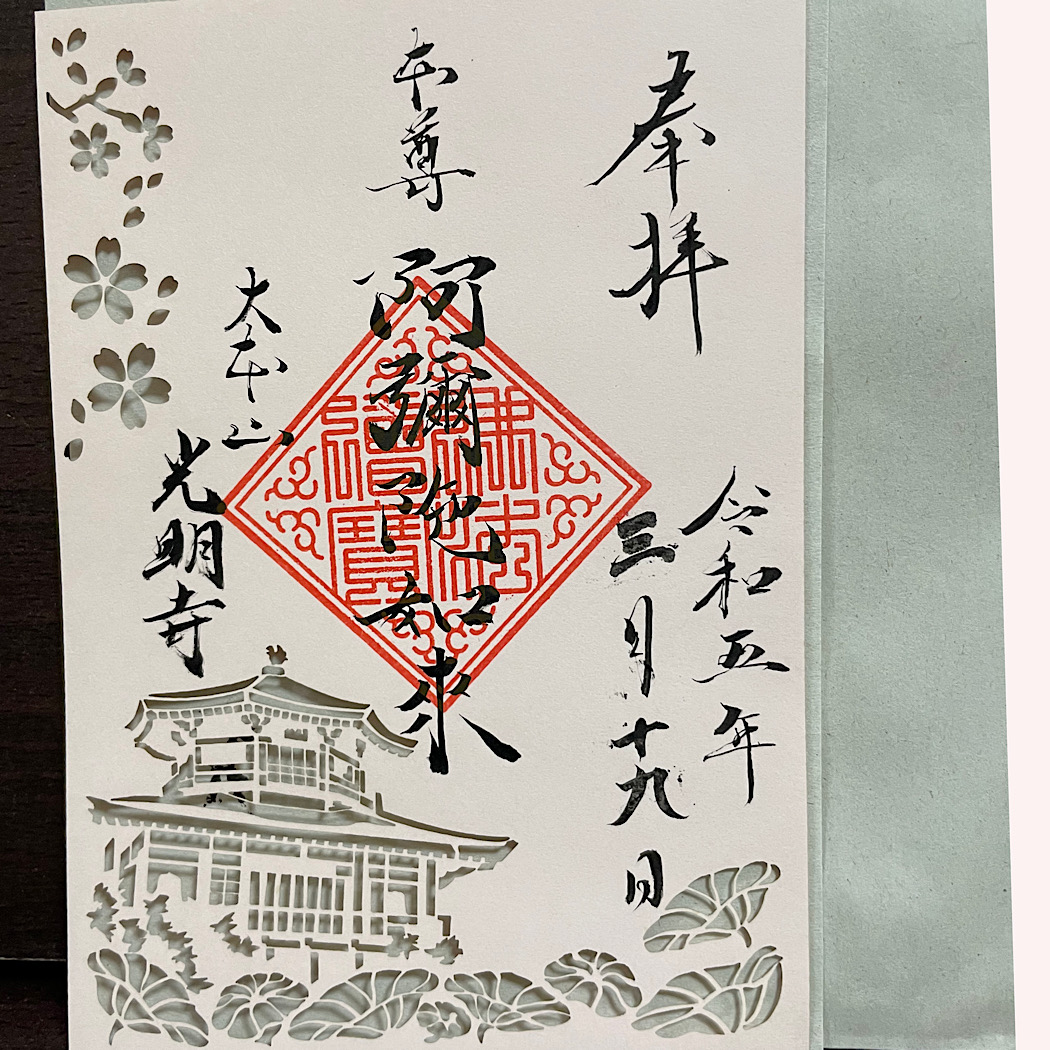 奉拝
令和五年
三月十九日
本尊
阿彌陀如来
佛法
僧寳
大本山
光明寺